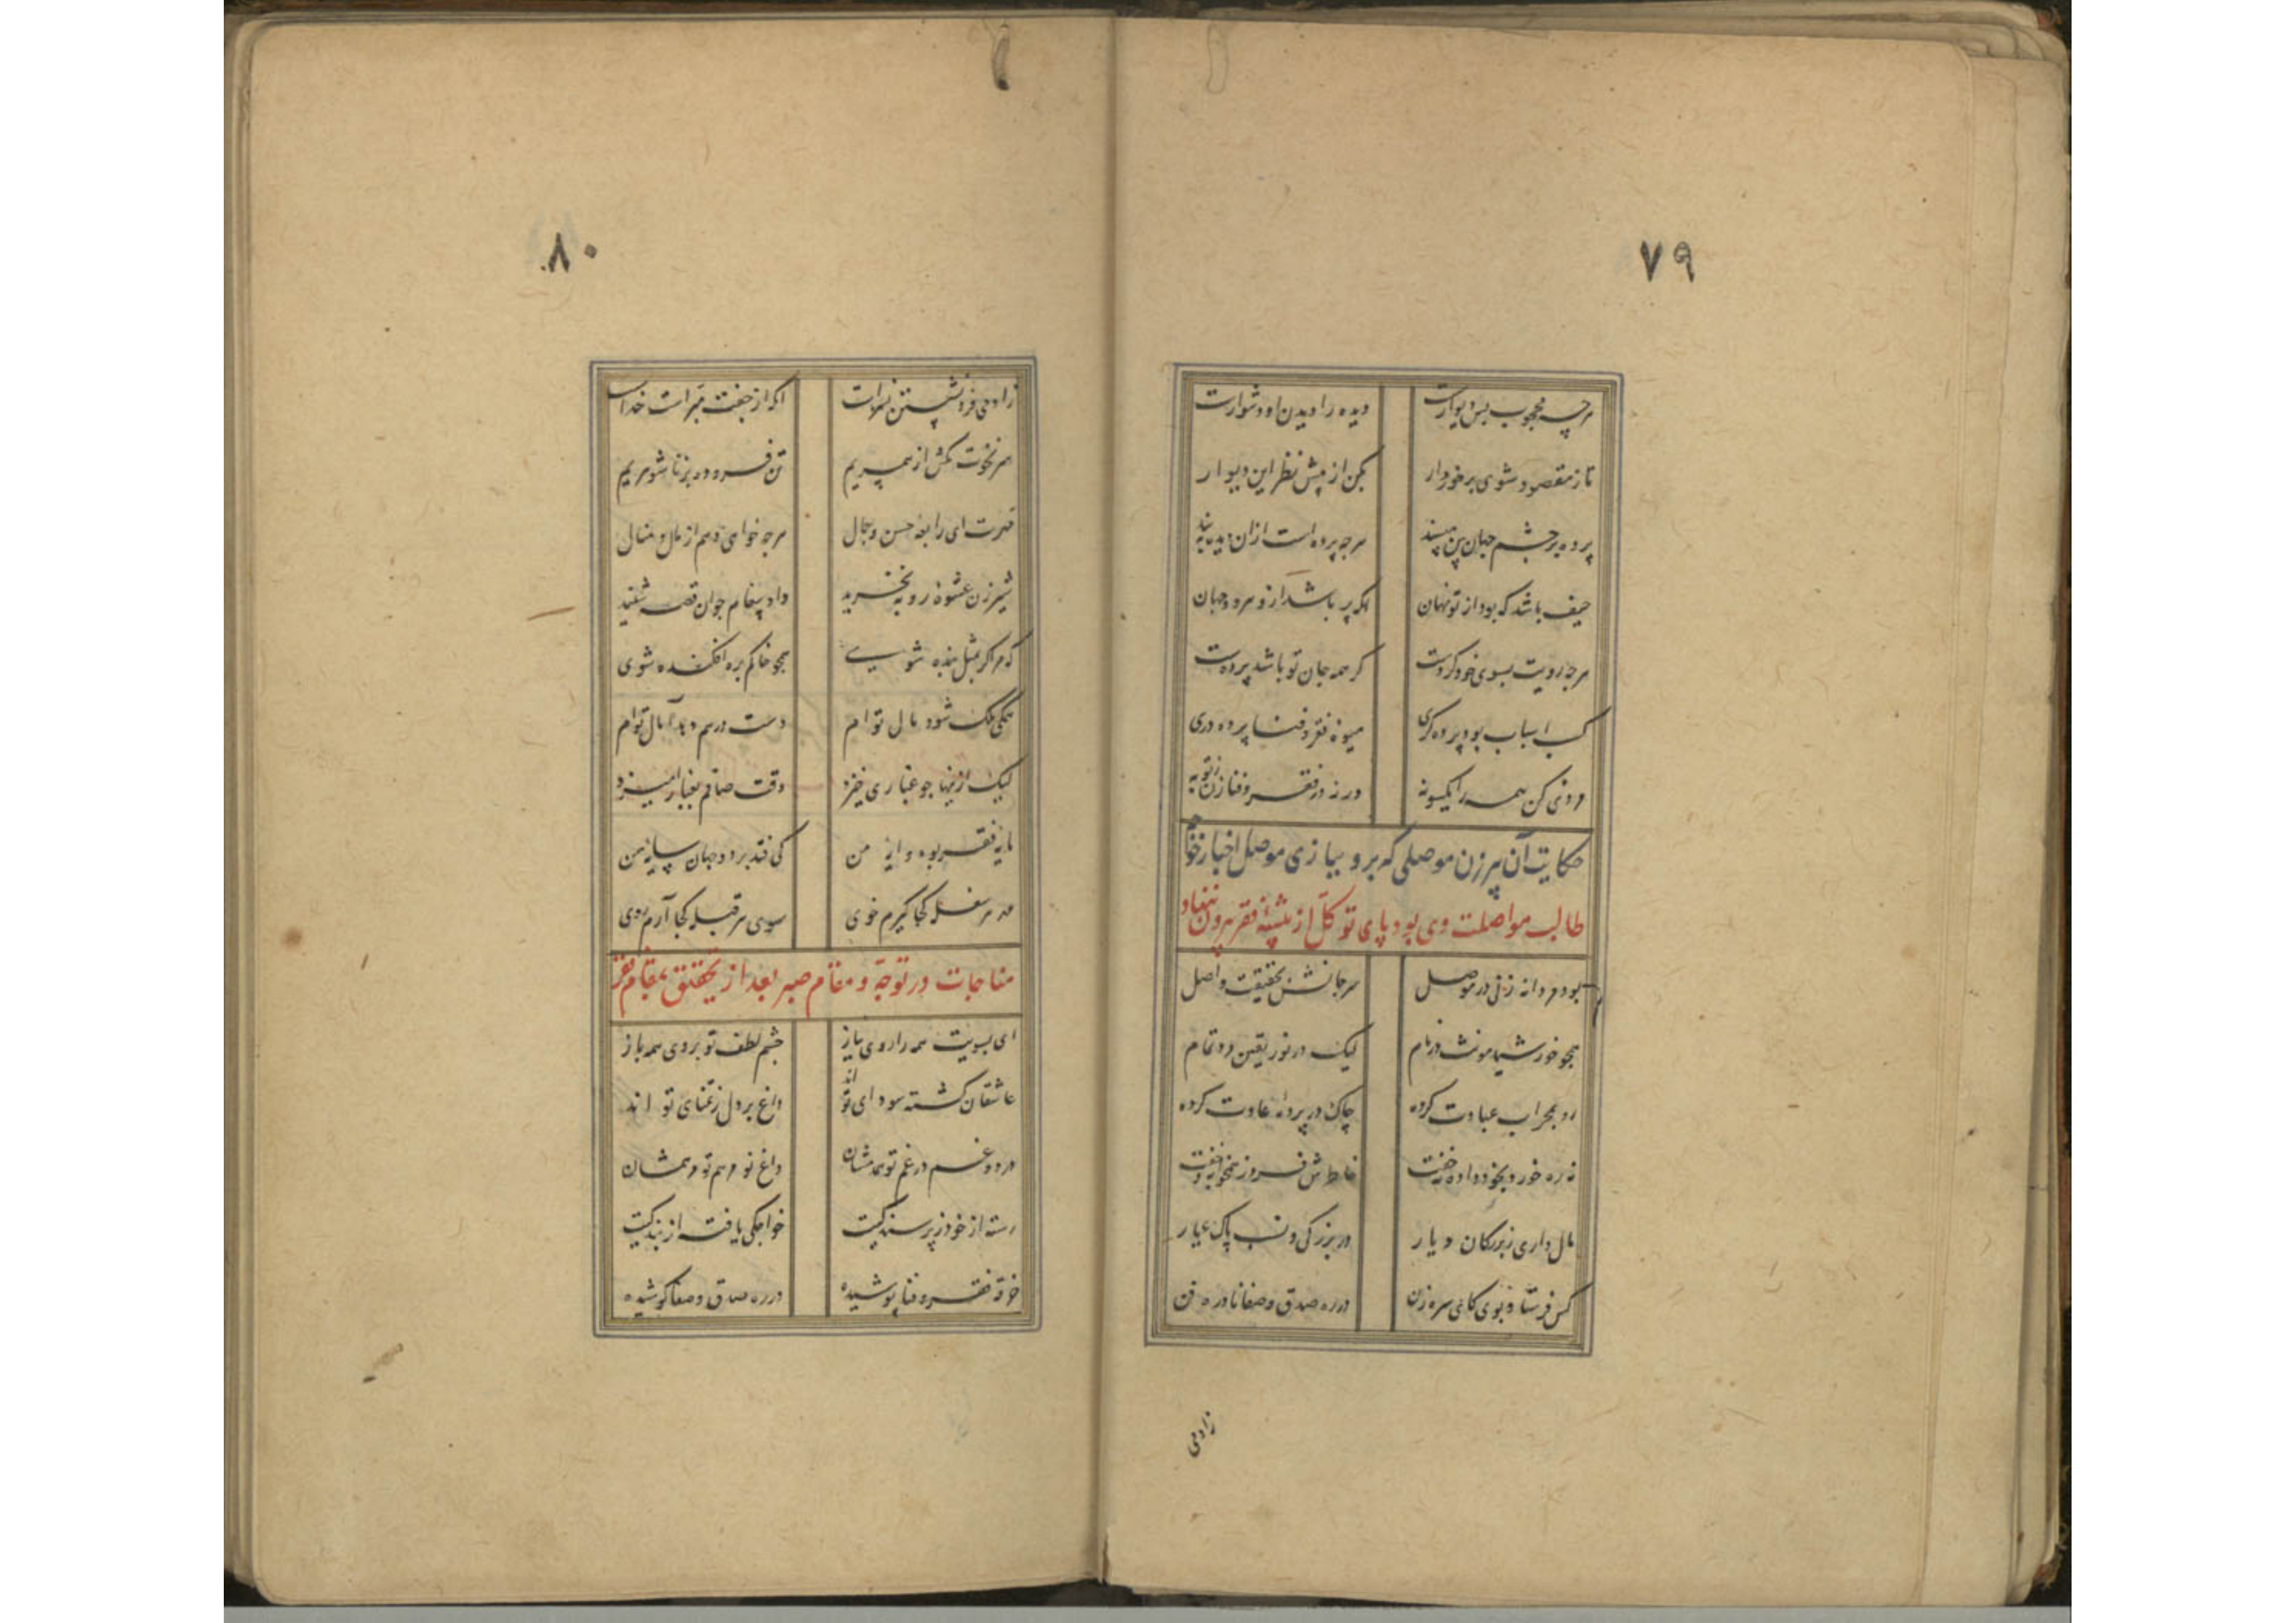 ۷۹
هرچه محجوب پس دیوارست دیده را دیدن او دشوارست
تا ز مقصود شوی برخوردار بکن از پیش نظر این دیوار
پرده بر چشم جهان بین مپسند هرچه پرده است ازان دیده ببند
حیف باشد که بود از تو نهان اکه پر باشد ازو هر دو جهان
هرچه رویت بسوی خود کردست کر همه جان تو باشد پردست
کسب اسباب بود پرده کری میوهٔ فقر و فنا پرده دری
مردی کن همه را یکسو نه در ره فقر و فنا زن تو به
حکایت آن پیر زن موصلی که بر و بیازی موصل اخبار خوا
طالب مواصلت وی بود پای توکل از بیشهٔ فقر بیرون ننهاد
بود مردانه زنی در موصل سر جانش بحقیقت واصل
همچو خورشید مونث در نام لیک در نور یقین مرد تمام
رو بمحراب عبادت کرده چاک در پردهٔ عادت کرده
نه ره خورد بخود داده نه خفت خاطرش فرد ز همخوابه و جفت
مال داری ز بزرکان دیار در بزرکی و نسب پاک عیار
کس فرستاد بوی کای سره زن در ره صدق و صفا نادره فن
زادمی
۸۰
زادمی فرد نشستن نه سزاست اکه از جفت مبراست خداست
سر نخوت مکش از همسریم تن فرو ده بزناشوهریم
مهرت ای رابعهٔ حسن و جمال هرچه خواهی دهم از مال و منال
شیر زن عشوهٔ روبه نخرید داد پیغام جوان قصه شنید
که مرا کر بمثل بنده شوی همچو خاکم بره افکنده شوی
همکی ملک شود مال توام دست درهم دهد آمال توام
لیک ازینها چو غباری خیزد وقت صافم بغبار امیزد
مایهٔ فقر بود دایهٔ من کی فتد بر دو جهان سایهٔ من
من بهر سفله کجا کیرم خوی سوی هر قبله کجا آرم روی
مناجات در توجه و مقام صبر بعد از تحقق بمقام فقر
ای بسویت همه را روی نیاز چشم لطف تو بروی همه باز
عاشقان کشته سودای تو اند داغ بر دل ز تمنای تو اند
درد و غم در غم تو همدمشان داغ تو مرهم تو مرهمشان
رسته از خود ز پرستندکیت خواجکی یافته از بندکیت
خرقه فقر و فنا پوشیده در ره صدق و صفا کوشیده